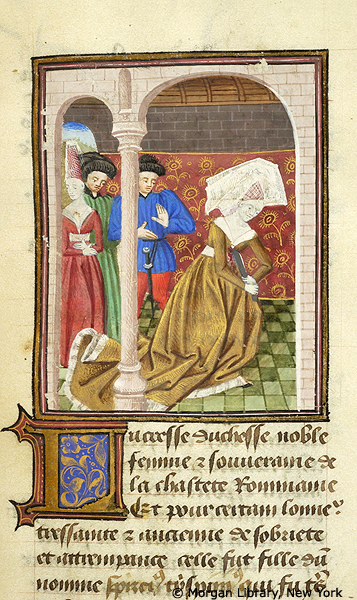 Lucresse duchesse noble
femme ⁊ souveraine de
la chastete Rommaine
Et pour certain lonneˢ
tressainte ⁊ ancienne de sobriete
et attrempance celle fut fille dun
nomme qui fut
© Morgan Library, New York